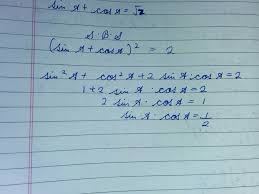 sin A + cos A = √2
S. B. S
(sin A + cos A)² = 2
sin² A + cos² A + 2 sin A · cos A = 2
1 + 2 sin A · cos A = 2
2 sin A · cos A = 1
sin A · cos A = 1/2